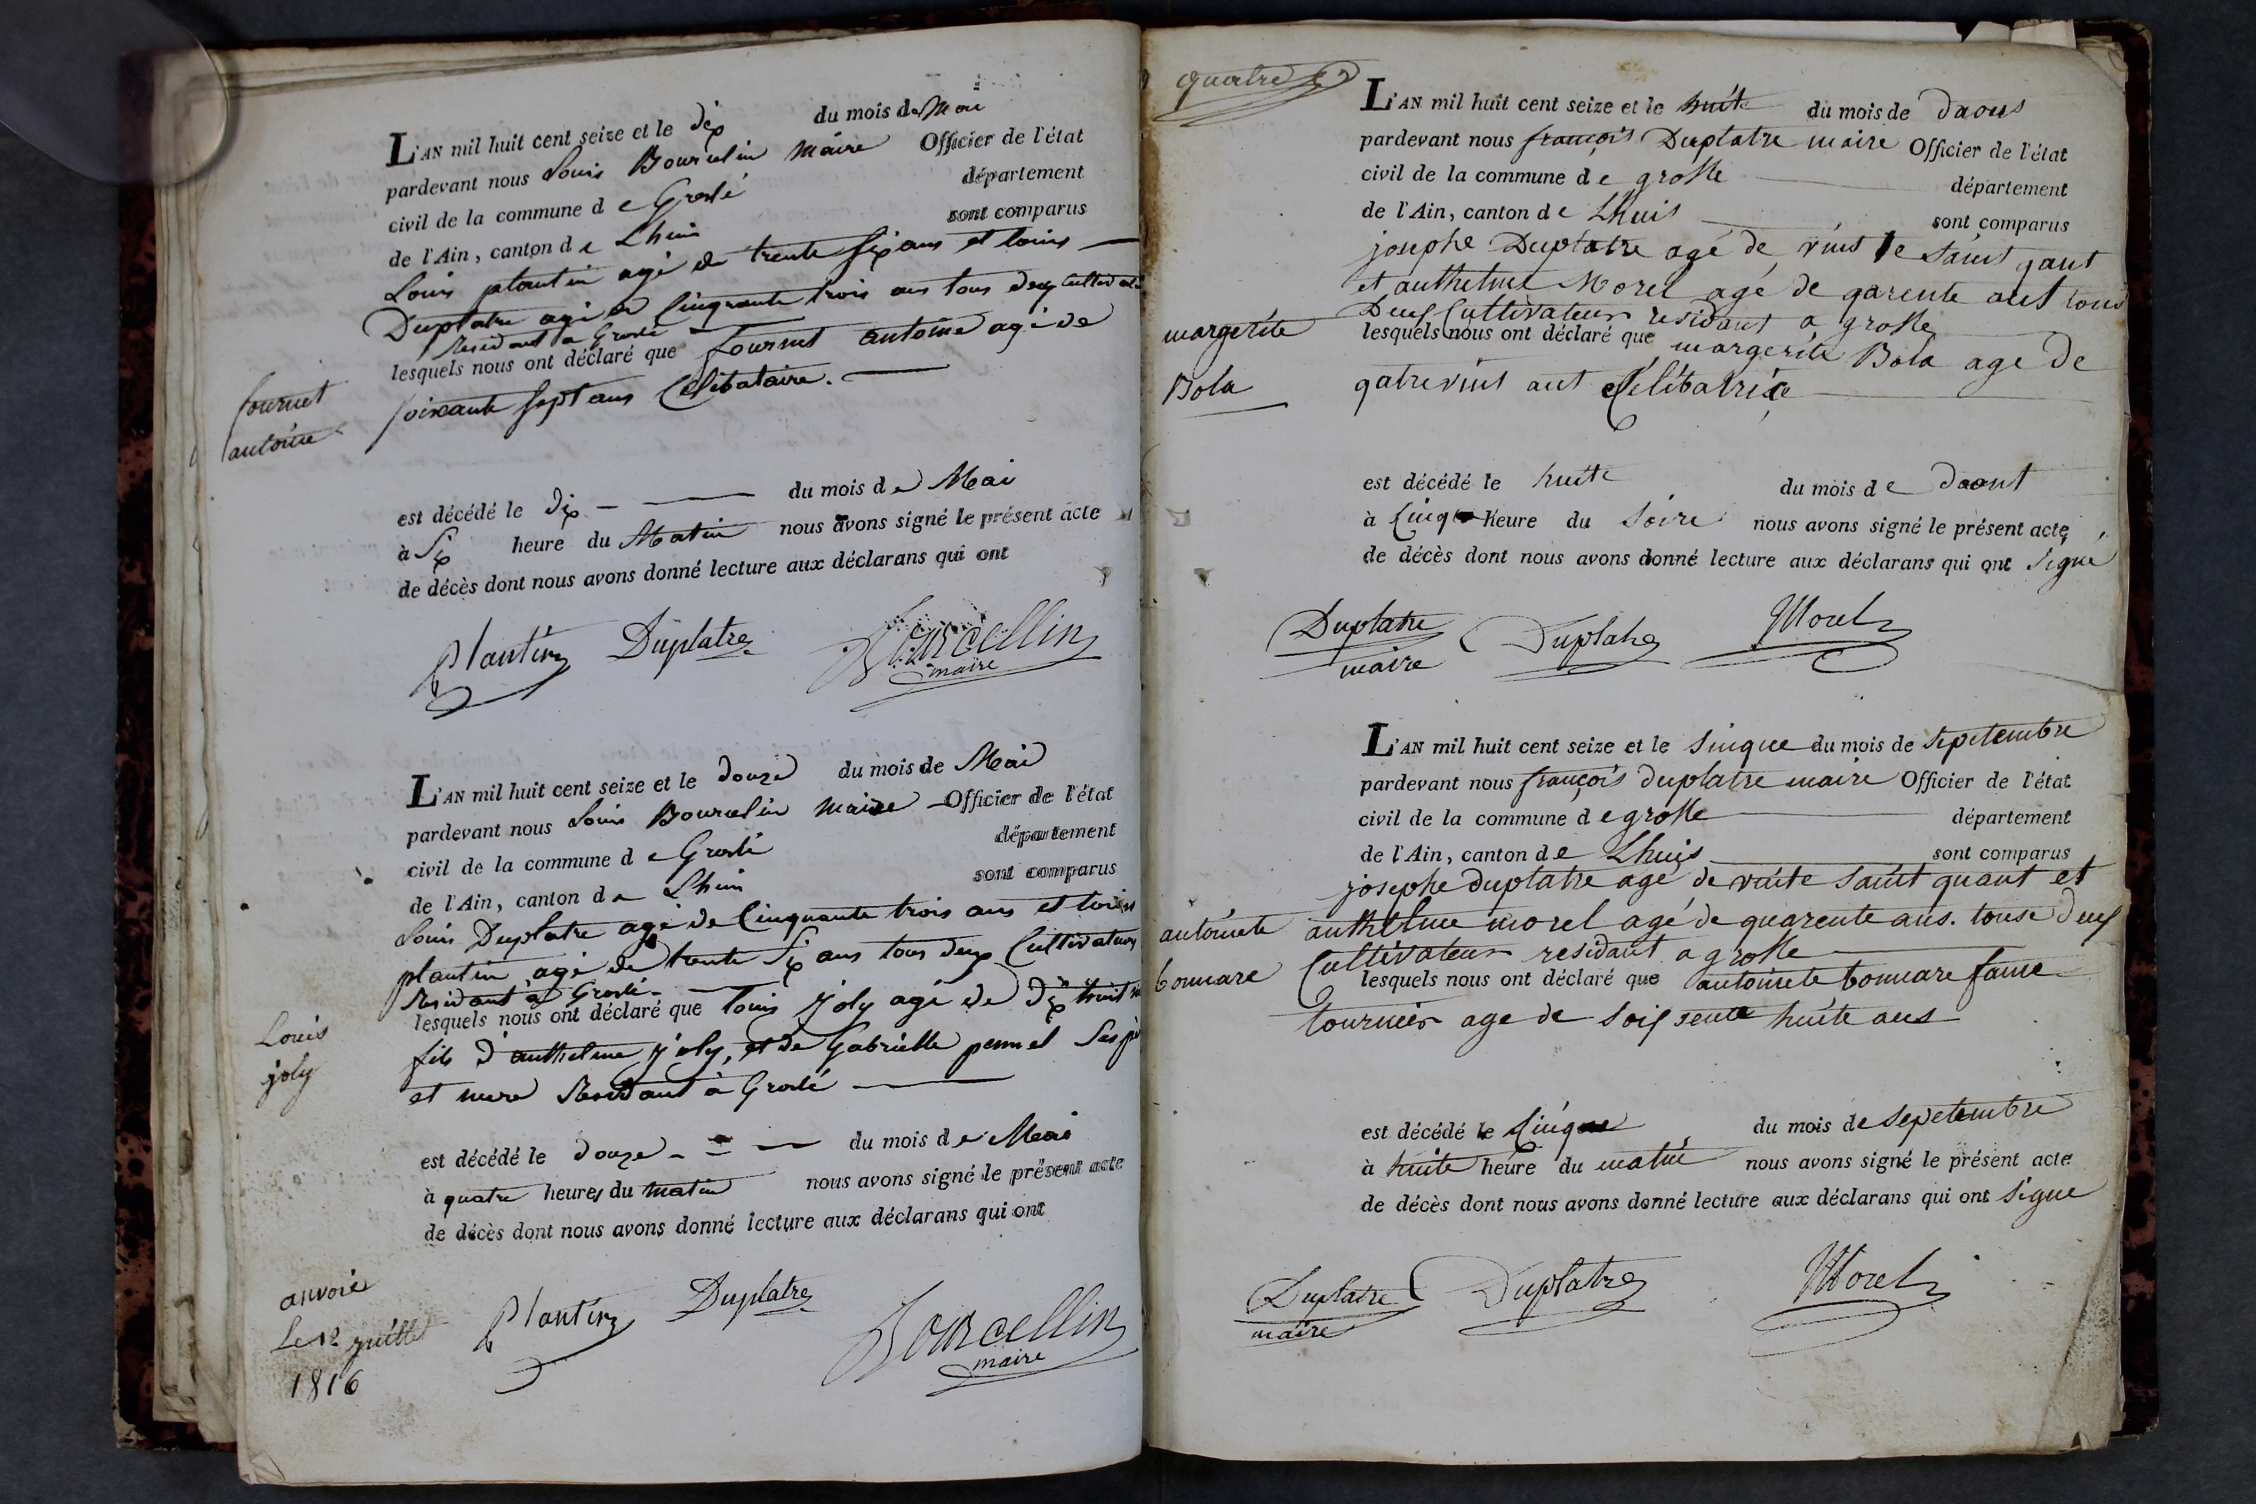 L'AN mil huit cent seize et le dix du mois de Mai
pardevant nous Louis Bourcelin Maire Officier de l'état
civil de la commune de Groslé département
de l'Ain, canton de Lhuis sont comparus
Louis plantin agé de trente six ans et louis
Duplatre agé de Cinquante trois ans tous deux Cultivat
Residant a Groslé
lesquels nous ont déclaré que fournet antoine agé de
soixante sept ans Celibataire.
fournet
antoine
est décédé le dix du mois de Mai
à Six heure du Matin nous avons signé le présent acte
de décès dont nous avons donné lecture aux déclarans qui ont
Plantin Duplatre Bourcellin
maire
L'AN mil huit cent seize et le douze du mois de Mai
pardevant nous Louis Bourcelin Maire Officier de l'état
civil de la commune de Groslé département
de l'Ain, canton de Lhuis sont comparus
Louis Duplatre agé de Cinquante trois ans et louis
plantin agé de trente Six ans tous deux Cultivateurs
Residant à Groslé
lesquels nous ont déclaré que louis joly agé de dix huit
fils d'anthelme joly, et de Gabrielle pennel Ses
et mere Residant à Groslé
Louis
joly
est décédé le douze du mois de Mai
à quatre heures du matin nous avons signé le présent acte
de décès dont nous avons donné lecture aux déclarans qui ont
anvoié
Le 12 juillet
1816
Plantin Duplatre Bourcellin
maire
quatre
L'AN mil huit cent seize et le huite du mois de daous
pardevant nous françois Duplatre maire Officier de l'état
civil de la commune de grosle département
de l'Ain, canton de Lhuis sont comparus
josephe Duplatre agé de vint e saint qant
et anthelme Morel agé de qarente ant tous
Deux Cultivateur residant a grosle
lesquels nous ont déclaré que margerite Bola age de
qatrevint ant Célibatrice
margerite
Bola
est décédé le huite du mois de daout
à Cinq heure du Soire nous avons signé le présent acte
de décès dont nous avons donné lecture aux déclarans qui ont signé
Duplatre Duplatre Morel
maire
L'AN mil huit cent seize et le sinque du mois de septembre
pardevant nous françois duplatre maire Officier de l'état
civil de la commune de grosle département
de l'Ain, canton de Lhuis sont comparus
josephe duplatre agé de vinte saint quant et
anthelme morel agé de quarente ans. touse deux
Cultivateur residant a grosle
lesquels nous ont déclaré que antoinete bonnare fame
tournier age de soissente huite ans
antoinete
bonnare
est décédé le Cinque du mois de sepetembre
à huite heure du matin nous avons signé le présent acte
de décès dont nous avons donné lecture aux déclarans qui ont signe
Duplatre Duplatre Morel
maire